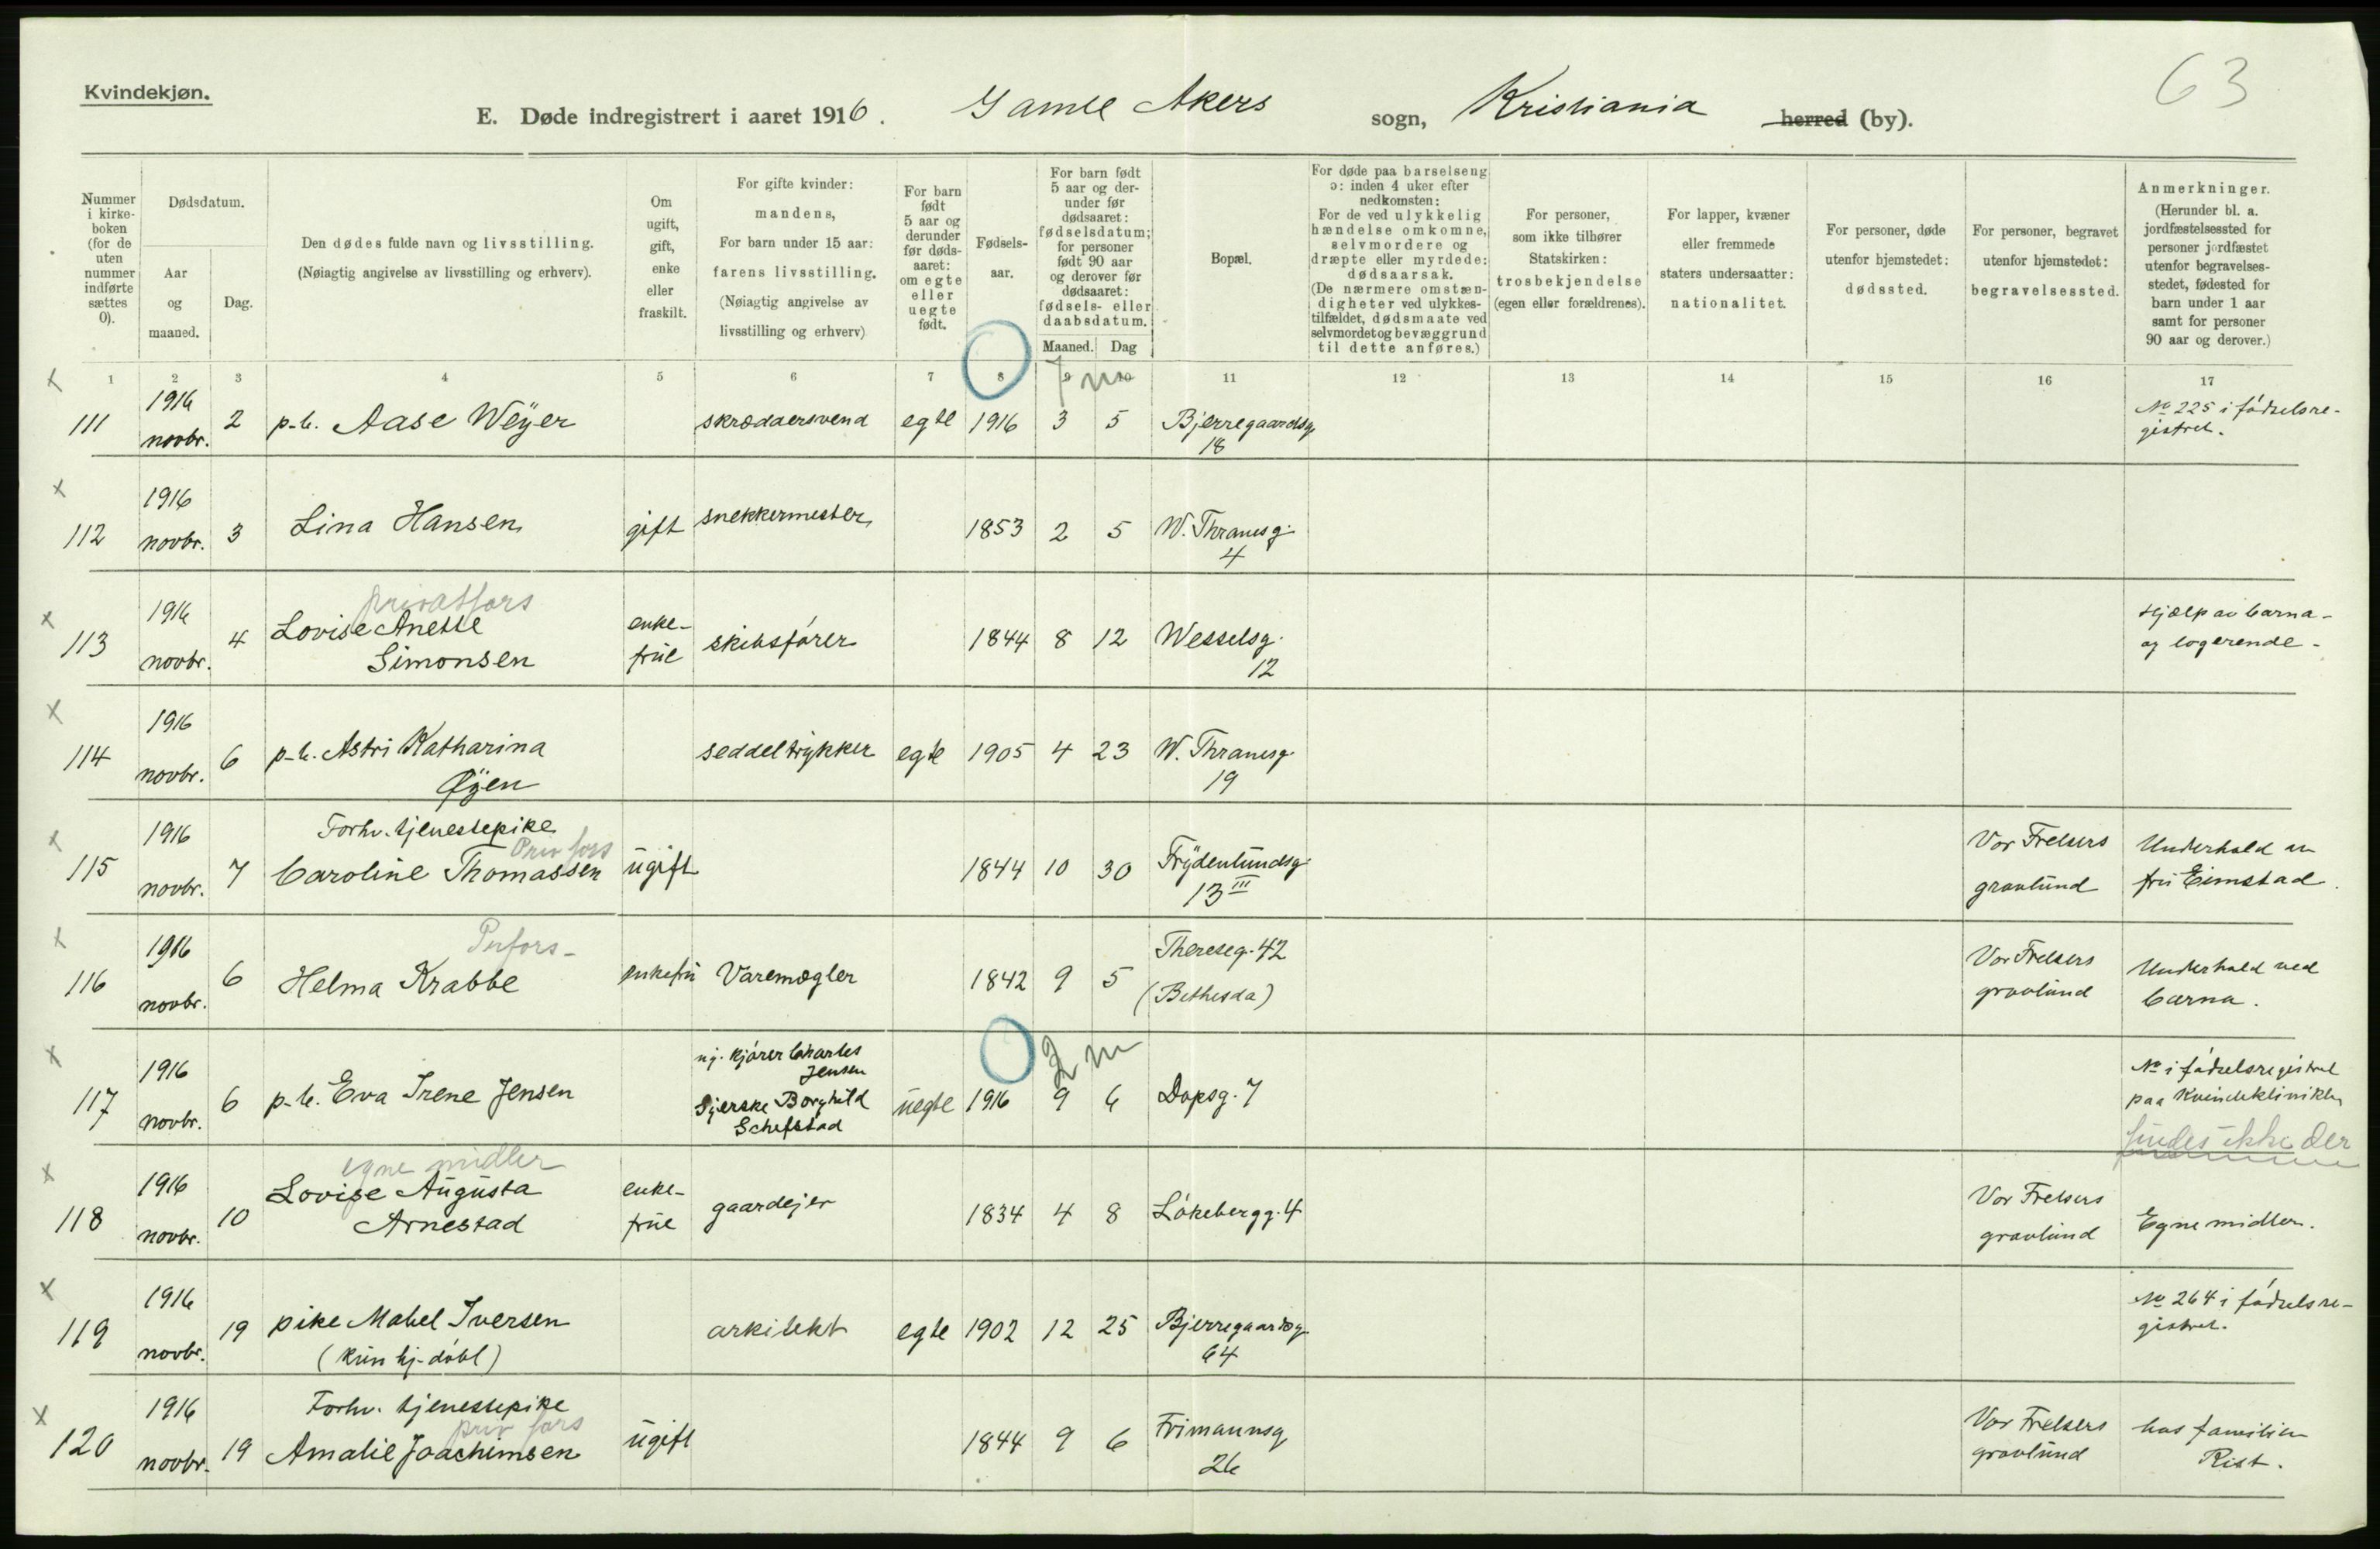 63
Kvindekjøn.
E. Døde indregistrert i aaret 1916. Gamle Akers sogn, Kristiania herred (by).
Nummer i kirke-boken (for de uten nummer indførte sættes 0).
Dødsdatum.
Aar og maaned.
Dag.
Den dødes fulde navn og livsstilling.
(Nøiagtig angivelse av livsstilling og erhverv).
Om ugift, gift, enke eller fraskilt.
For gifte kvinder: mandens, For barn under 15 aar: farens livsstilling. (Nøiagtig angivelse av livsstilling og erhverv)
For barn født 5 aar og derunder før døds-aaret: om egte eller uegte født.
Fødsels-aar.
For barn født 5 aar og der-under før dødsaaret: fødselsdatum; for personer født 90 aar og derover før dødsaaret: fødsels- eller daabsdatum.
Maaned. Dag
Bopæl.
For døde paa barselseng ɔ: inden 4 uker efter nedkomsten: For de ved ulykkelig hændelse omkomne, selvmordere og dræpte eller myrdede: dødsaarsak. (De nærmere omstæn-digheter ved ulykkes-tilfældet, dødsmaate ved selvmordet og bevæggrund til dette anføres.)
For personer, som ikke tilhører Statskirken: trosbekjendelse (egen eller forældrenes).
For lapper, kvæner eller fremmede staters undersaatter: nationalitet.
For personer, døde utenfor hjemstedet: dødssted.
For personer, begravet utenfor hjemstedet: begravelsessted.
Anmerkninger. (Herunder bl. a. jordfæstelsessted for personer jordfæstet utenfor begravelses-stedet, fødested for barn under 1 aar samt for personer 90 aar og derover.)
1 2 3 4 5 6 7 8 9 10 11 12 13 14 15 16 17
7 m
111 1916 novbr. 2 p-b. Aase Weÿer skræddersvend egte 1916 3 5 Bjerregaardsg. 18 No 225 i fødselsre-gistret.
112 1916 novbr. 3 Lina Hansen gift snekkermester 1853 2 5 W. Thranesg. 4
privatfors
113 1916 novbr. 4 Lovise Anette Simonsen enke-frue skibsfører 1844 8 12 Wesselsg. 12 Hjælp av barna- og logerende-
114 1916 novbr. 6 p-b. Astri Katharina Øÿen seddeltrykker egte 1905 4 23 W. Thranesg. 19
115 1916 novbr. 7 Forhv. tjenestepike Priv fors Caroline Thomassen ugift 1844 10 30 Frÿdenlundsg. 13 III Vor Frelsers gravlund Underhold av fru Eimstad.
116 1916 novbr. 6 Helma Krabbe enkefru Varemægler 1842 9 5 Thereseg. 42 (Bethesda) Vor Frelsers gravlund Underhold ved barna.
2 m
117 1916 novbr. 6 p-b. Eva Irene Jensen kjører Charles Jensen Syerske Borghild Schefstad uegte 1916 9 6 Dopsg. 7 No i fødselsregistret paa Kvindeklinikken
findes ikke der
egne midler
118 1916 novbr. 10 Lovise Augusta Arnestad enke-frue gaardejer 1834 4 8 Løkebergg. 4 Vor Frelsers gravlund Egne midler.
119 1916 novbr. 19 pike Mabel Iversen (kun hj-døbt) arkitekt egte 1902 12 25 Bjerregaardsg. 64 No 264 i fødselsre-gistret.
120 1916 novbr. 19 Forhv. tjenestepike priv fors Amalie Joachimsen ugift 1844 9 6 Frimannsg 26 Vor Frelsers gravlund hos familien Rist.